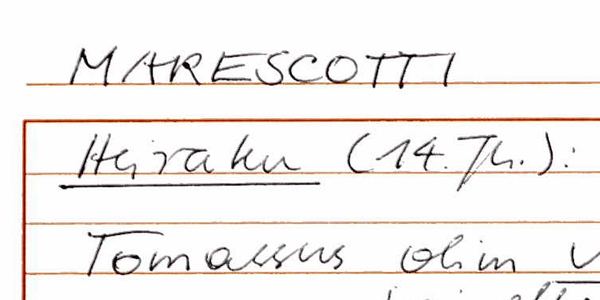 MARESCOTTI
Heiraten (14. Jh.):
Tomassus olim